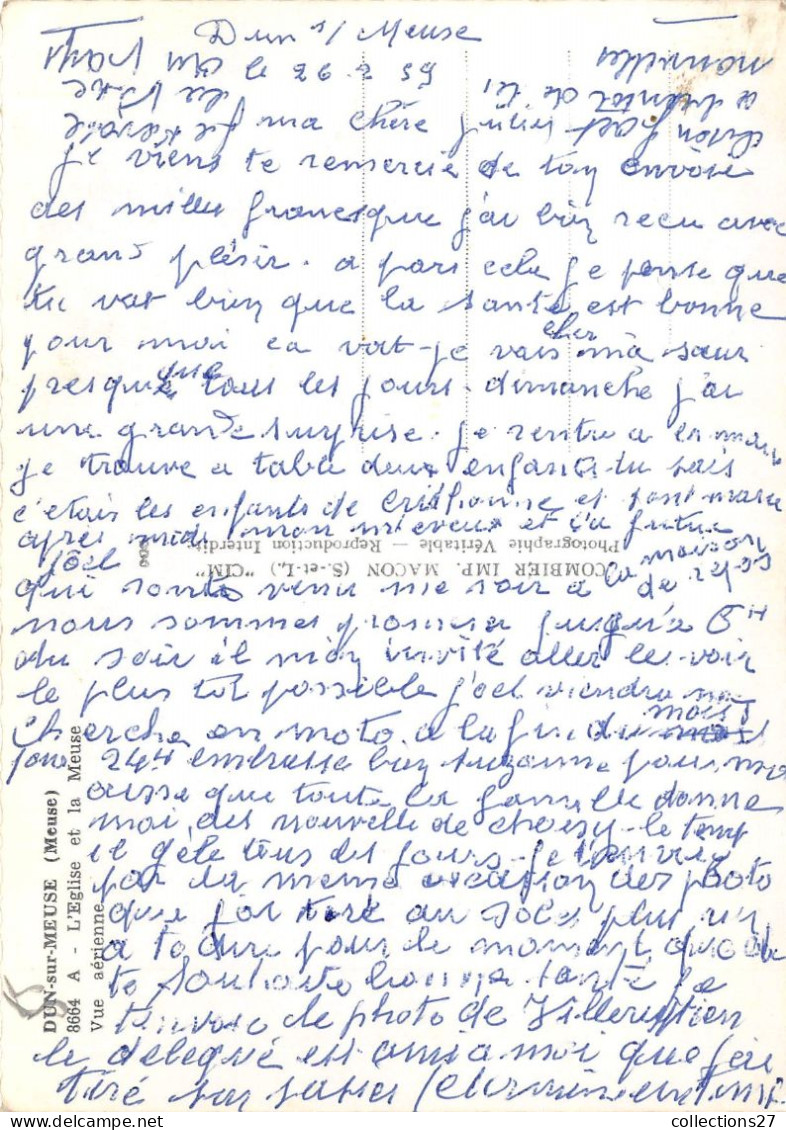 Dun s/ Meuse
le 26.2 59
ma chère
je viens te remercie de ton envoie
des milles francs que j'ai bien recu avec
grand plésir. a pars cela je pense que
tu vat bien que la santé est bonne
pour moi ca vat - je vais cher ma sœur
presque tous les jours - dimanche j'ai
une grande surprise. je rentre a
je trouve a table deux enfants tu sais
c'etais les enfants de et
apres midi mon neveux et sa future
joël
qui sont venu me voir a la maison de repos
nous sommes promener jusqu'a 6H
du soir il m'on invité aller le voir
le plus tot possible joel viendra me
cherche en moto a la fin du mois
pour 24H embrasse bien suzanne pour moi
aussi que toute la famille donne
moi des nouvelle de choisy - le temp
il gèle tous les jours - je t'envoie
par la meme ocasion des photo
que j'ai tiré au soleil plus rien
a te dire pour le moment
te souhaite bonne santé je
t'envoie le photo de
le delegué est ami a moi que j'ai
tiré
nouvelles
a bientot de tes
COMBIER IMP. MACON (S.-et-L.) "CIM"
Photographie Véritable — Reproduction Interdite
DUN-sur-MEUSE (Meuse)
8664 A - L'Eglise et la Meuse
Vue aérienne
collections27